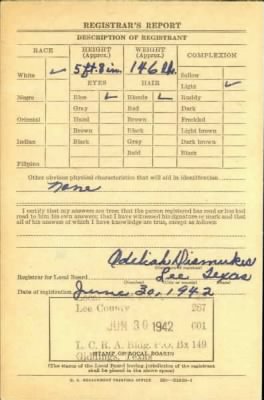 REGISTRAR'S REPORT
DESCRIPTION OF REGISTRANT
RACE HEIGHT (Approx.) WEIGHT (Approx.) COMPLEXION
White ✓ 5 ft. 8 in. 146 lb. Sallow
EYES HAIR Light ✓
Negro Blue ✓ Blonde ✓ Ruddy
Gray Red Dark
Oriental Hazel Brown Freckled
Brown Black Light brown
Indian Black Gray Dark brown
Bald Black
Filipino
Other obvious physical characteristics that will aid in identification
None
I certify that my answers are true; that the person registered has read or has had
read to him his own answers; that I have witnessed his signature or mark and that
all of his answers of which I have knowledge are true, except as follows:
Adeliah Dismukes
Registrar for Local Board Lee Texas
Date of registration June 30, 1942
Lee County 287
JUN 30 1942 001
L. C. R. A. Bldg. P.O. Bx 149
Giddings, Texas
STAMP OF LOCAL BOARD
(The stamp of the Local Board having jurisdiction of the registrant
shall be placed in the above space)
U. S. GOVERNMENT PRINTING OFFICE